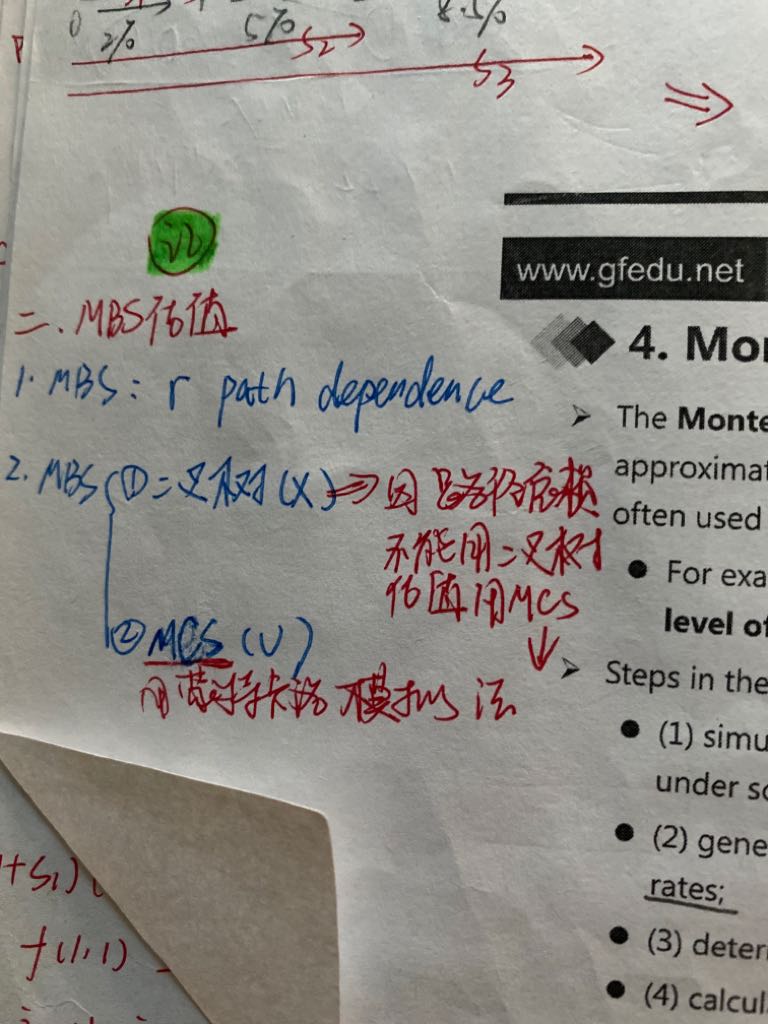 0 2% 5% 8.5%
S2
S3
⇒
记
www.gfedu.net
二、MBS估值
4. Mon
1. MBS: r path dependence
The Monte
2. MBS ①二叉树(X) ⇒ 因路径依赖
approximat
不能用二叉树
often used
估值用MCS
For exa
level of
②MCS(V)
用蒙特卡洛模拟法
Steps in the
(1) simu
under so
(2) gene
rates;
+S1)(
f(1,1)
(3) deter
(4) calcul